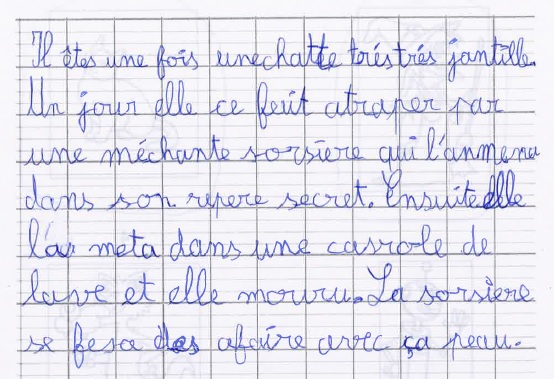 Il êtes une fois unechatte trés trés jantille.
Un jour elle ce feut atraper par
une méchante sorsiere qui l'anmena
dans son repere secret. Ensuite elle
la meta dans une casrole de
lave et elle mouru. La sorsiere
se fesa des afaire avec ça peau.